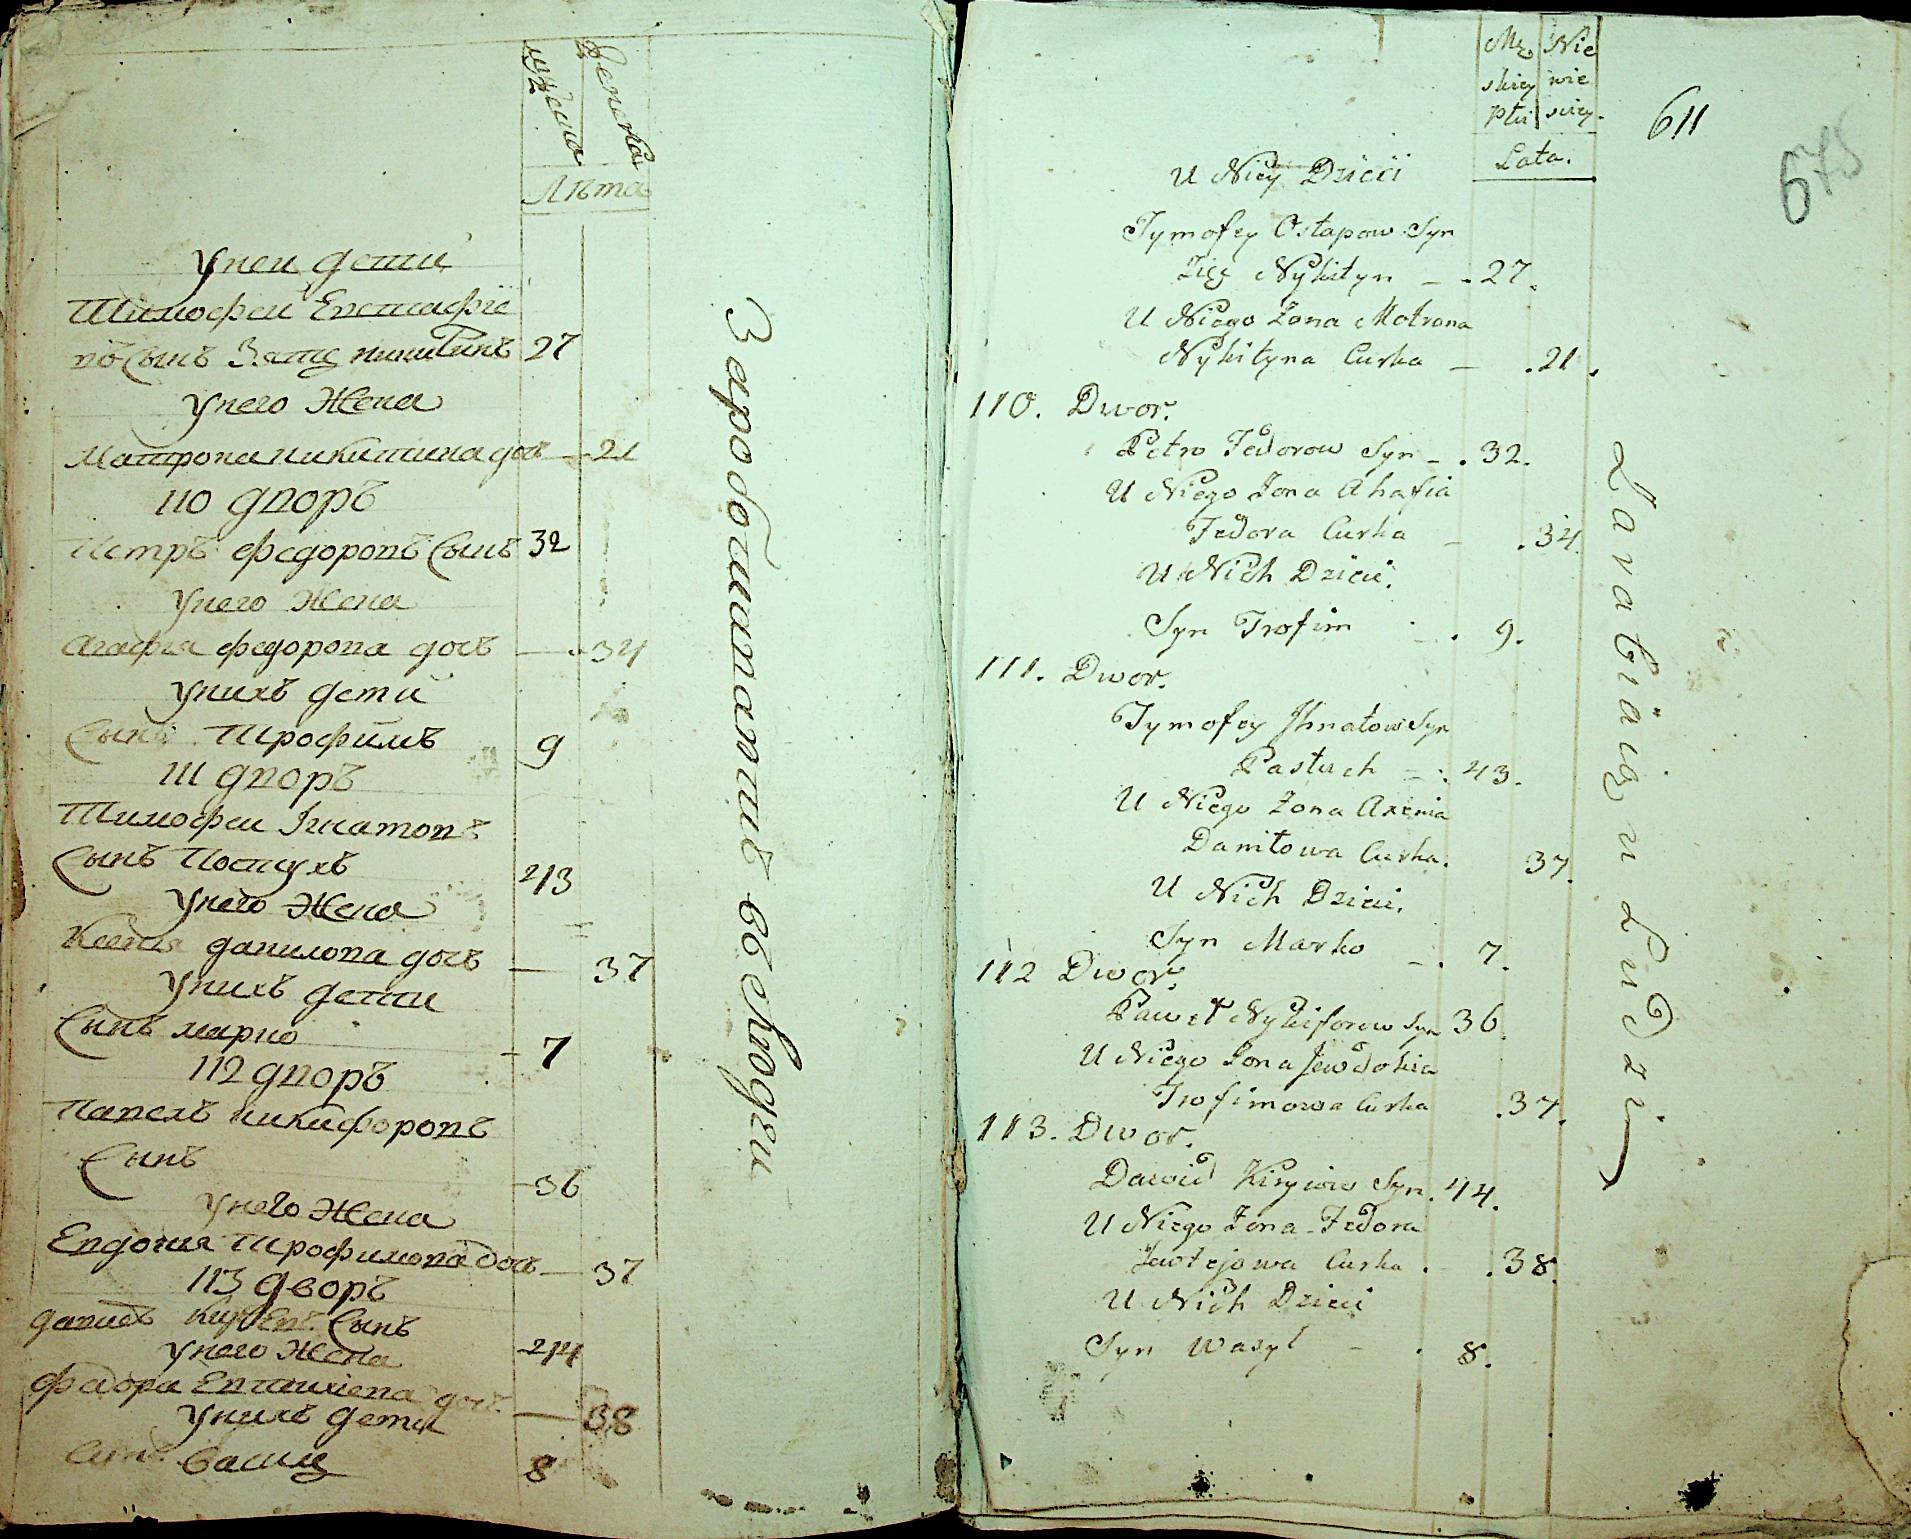 Мужеска
Женска
Лѣта
У неи дети
Тимофеи Евстафіе
въ Сынъ Зять никитинъ 27
У него Жена
Матрона никитина доч — 21
110 дворъ
Петръ федоровъ Сынъ 32
У него Жена
Агафия федорова дочь — 34
У нихъ дети
Сынъ Трофимъ 9
111 дворъ
Тимофеи Игнатовъ
Сынъ Пастухъ 43
У него Жена
Ксения данилова дочь — 37
У нихъ дети
Сынъ марко 7
112 дворъ
Павелъ никифоровъ
Сынъ 36
У него Жена
Евдокия Трофимова доч — 37
113 дворъ
давидъ Сынъ
У него Жена 44
Федора дочь — 38
У нихъ дети
Сынъ Василь 8
въ Люди
Mę Nie
skiey wie
Płci sciey.
Lata.
611
675
U Niey Dzieci
Tymofey Ostapow Syn
Zięć Nykityn — . 27.
U Niego Zona Motrona
Nykityna Curka — . 21.
110. Dwor.
Petro Fedorow Syn — . 32.
U Niego Zona Ahafia
Fedora Curka — . 34.
U Nich Dzieci.
Syn Trofim — . 9.
111. Dwor.
Tymofey Ihnatow Syn
Pastuch — . 43.
U Niego Zona Axenia
Daniłowa Curka. 37.
U Nich Dzieci.
Syn Marko — . 7.
112 Dwor.
Paweł Nykiforow Syn 36.
U Niego Zona Jewdokia
Trofimowa Curka . 37.
113. Dwor.
Dawid Kiryiow Syn . 44.
U Niego Zona Fedora
Jewtejowa Curka . . 38.
U Nich Dzieci
Syn Wasyl — . 8.
Zarabiaią u Ludzi